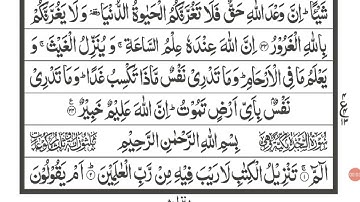 شَيْـًٔا ؕ اِنَّ وَعْدَ اللّٰهِ حَقٌّ فَلَا تَغُرَّنَّكُمُ الْحَيٰوةُ الدُّنْيَا ۥ وَلَا يَغُرَّنَّكُمْ
بِاللّٰهِ الْغَرُوْرُ ۝۳۳ اِنَّ اللّٰهَ عِنْدَهٗ عِلْمُ السَّاعَةِ ۚ وَيُنَزِّلُ الْغَيْثَ ۚ وَ
يَعْلَمُ مَا فِى الْاَرْحَامِ ؕ وَمَا تَدْرِىْ نَفْسٌ مَّاذَا تَكْسِبُ غَدًا ؕ وَمَا تَدْرِىْ
نَفْسٌۢ بِاَىِّ اَرْضٍ تَمُوْتُ ؕ اِنَّ اللّٰهَ عَلِيْمٌ خَبِيْرٌ ۝۳۴
سُوْرَةُ السَّجْدَةِ مَكِّيَّةٌ بِسْمِ اللّٰهِ الرَّحْمٰنِ الرَّحِيْمِ
الٓمّٓ ۝۱ تَنْزِيْلُ الْكِتٰبِ لَا رَيْبَ فِيْهِ مِنْ رَّبِّ الْعٰلَمِيْنَ ۝۲ اَمْ يَقُوْلُوْنَ